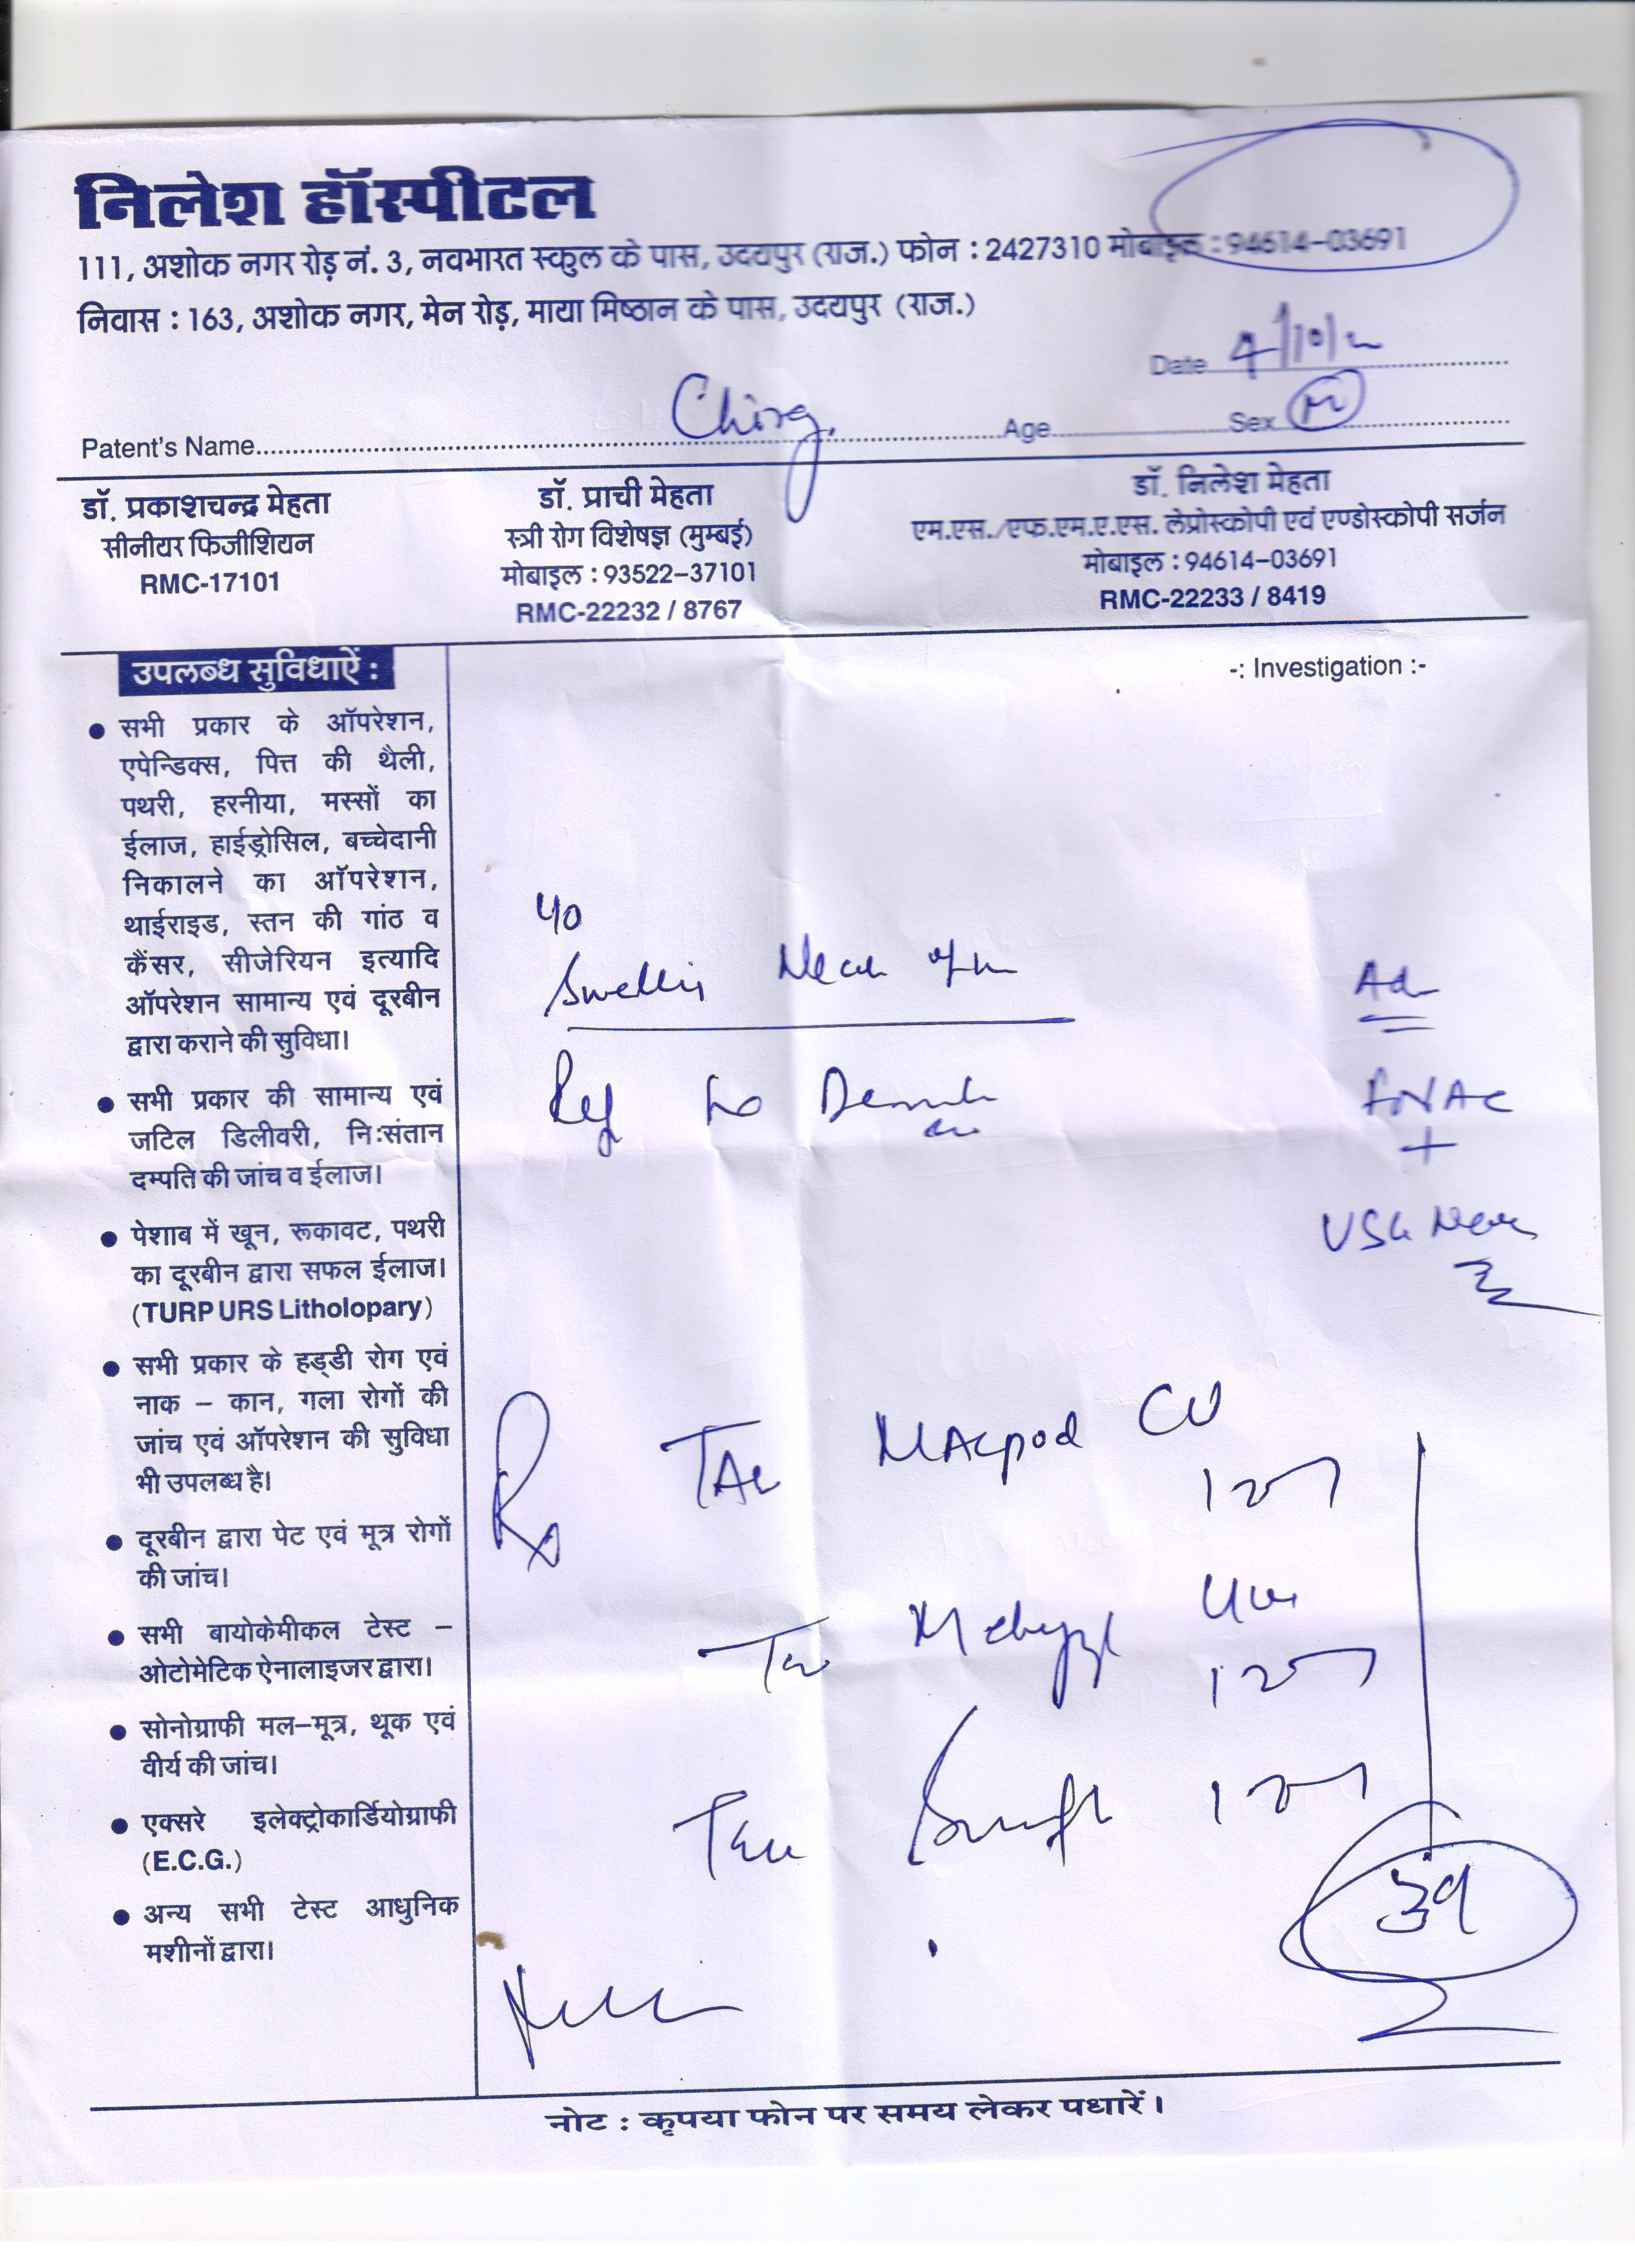 निलेश हॉस्पीटल
111, अशोक नगर रोड़ नं. 3, नवभारत स्कुल के पास, उदयपुर (राज.) फोन : 2427310 मोबाइल : 94614-03691
निवास : 163, अशोक नगर, मेन रोड़, माया मिष्ठान के पास, उदयपुर (राज.)
Date
Patent's Name Age Sex M
डॉ. प्रकाशचन्द्र मेहता
सीनीयर फिजीशियन
RMC-17101
डॉ. प्राची मेहता
स्त्री रोग विशेषज्ञ (मुम्बई)
मोबाइल : 93522-37101
RMC-22232 / 8767
डॉ. निलेश मेहता
एम.एस./एफ.एम.ए.एस. लेप्रोस्कोपी एवं एण्डोस्कोपी सर्जन
मोबाइल : 94614-03691
RMC-22233 / 8419
उपलब्ध सुविधाऐं :
● सभी प्रकार के ऑपरेशन,
एपेन्डिक्स, पित्त की थैली,
पथरी, हरनीया, मस्सों का
ईलाज, हाईड्रोसिल, बच्चेदानी
निकालने का ऑपरेशन,
थाईराइड, स्तन की गांठ व
कैंसर, सीजेरियन इत्यादि
ऑपरेशन सामान्य एवं दूरबीन
द्वारा कराने की सुविधा।
● सभी प्रकार की सामान्य एवं
जटिल डिलीवरी, निःसंतान
दम्पति की जांच व ईलाज।
● पेशाब में खून, रूकावट, पथरी
का दूरबीन द्वारा सफल ईलाज।
(TURP URS Litholopary)
● सभी प्रकार के हड्डी रोग एवं
नाक – कान, गला रोगों की
जांच एवं ऑपरेशन की सुविधा
भी उपलब्ध है।
● दूरबीन द्वारा पेट एवं मूत्र रोगों
की जांच।
● सभी बायोकेमीकल टेस्ट –
ओटोमेटिक ऐनालाइजर द्वारा।
● सोनोग्राफी मल–मूत्र, थूक एवं
वीर्य की जांच।
● एक्सरे इलेक्ट्रोकार्डियोग्राफी
(E.C.G.)
● अन्य सभी टेस्ट आधुनिक
मशीनों द्वारा।
-: Investigation :-
Ad
FNAC
+
USG
Rx
Macpod CV
नोट : कृपया फोन पर समय लेकर पधारें।